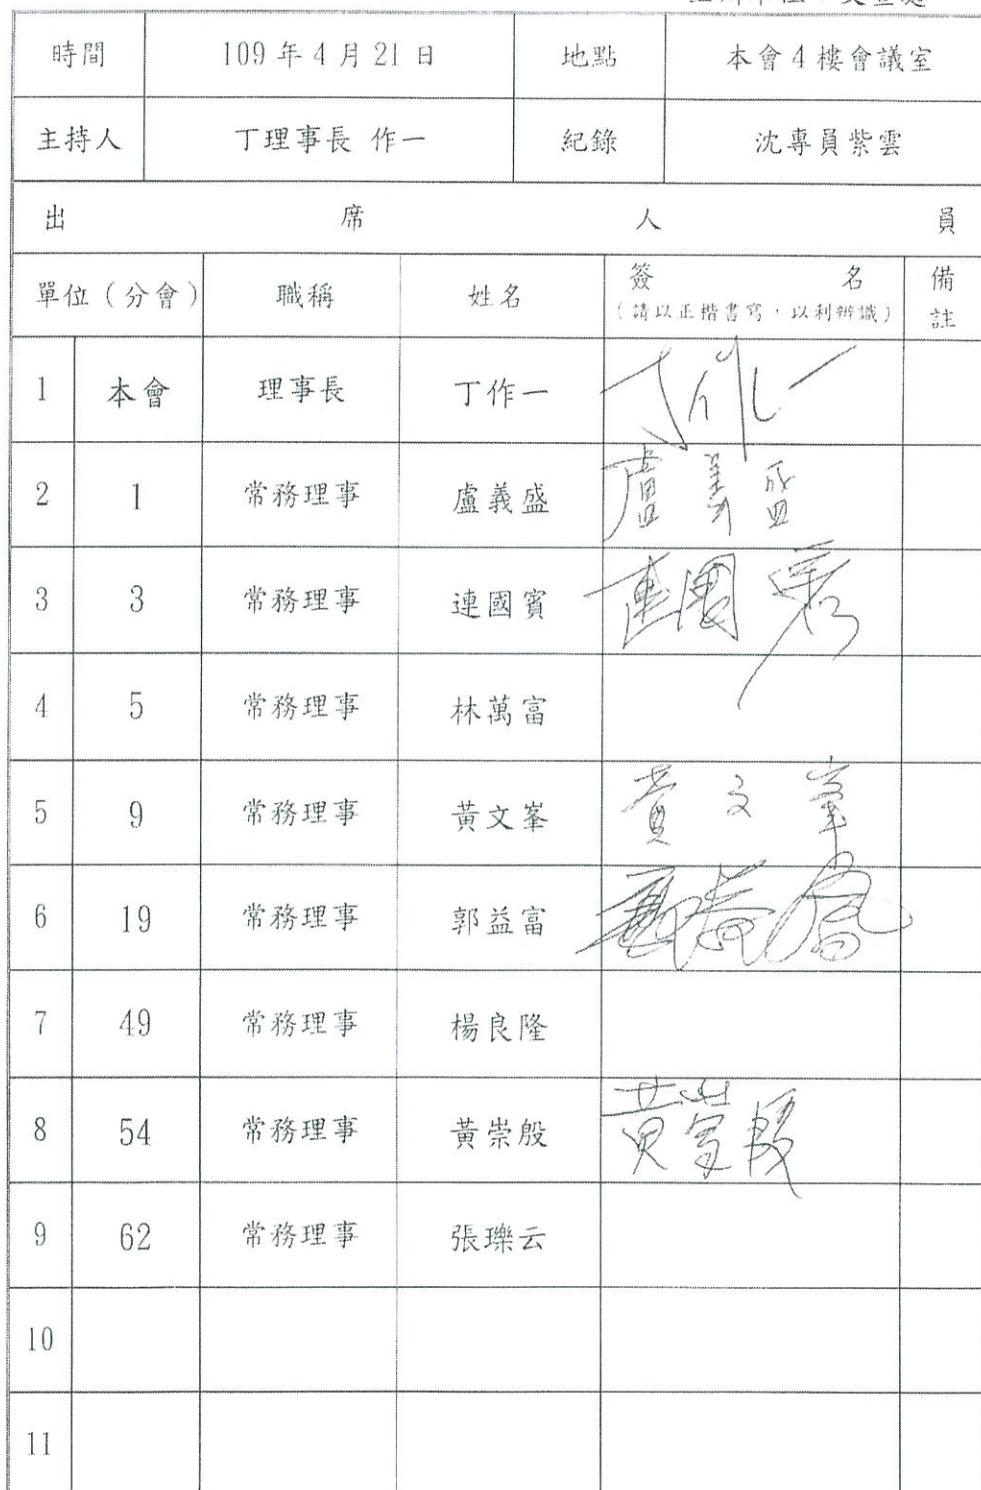 時間 109年4月21日 地點 本會4樓會議室
主持人 丁理事長 作一 紀錄 沈專員紫雲
出席人員
單位（分會） 職稱 姓名 簽名 備註
（請以正楷書寫，以利辨識）
1 本會 理事長 丁作一 丁作一
2 1 常務理事 盧義盛 盧義盛
3 3 常務理事 連國賓 連國賓
4 5 常務理事 林萬富
5 9 常務理事 黃文峯 黃文峯
6 19 常務理事 郭益富
7 49 常務理事 楊良隆
8 54 常務理事 黃崇殷 黃崇殷
9 62 常務理事 張瓅云
10
11